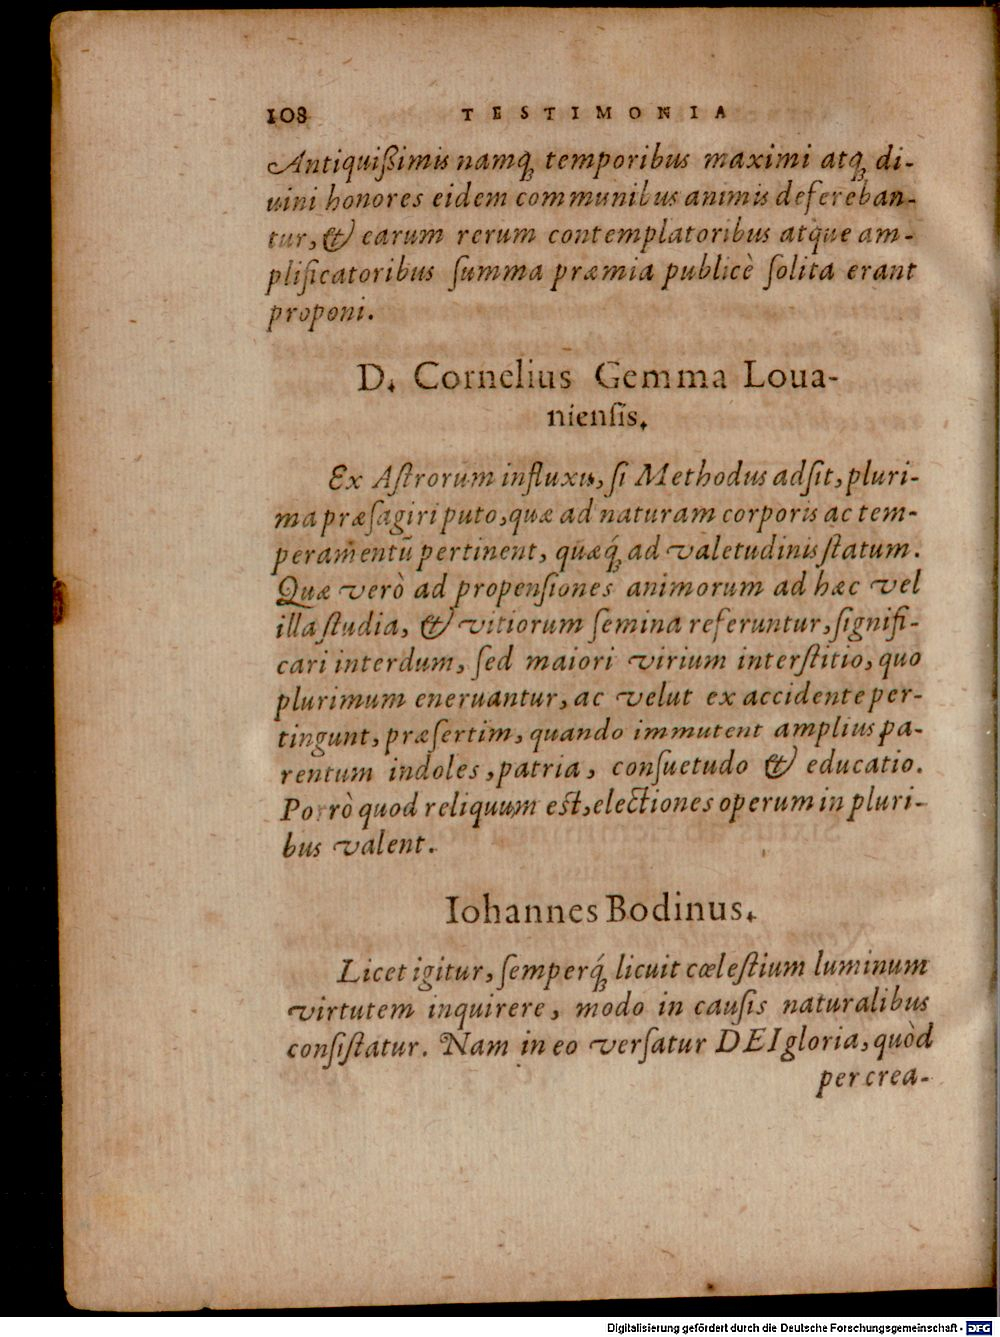 108 TESTIMONIA
Antiquißimis namq́; temporibus maximi atq́; di-
uini honores eidem communibus animis defereban-
tur, & earum rerum contemplatoribus atque am-
plificatoribus ſumma præmia publicè ſolita erant
proponi.
D. Cornelius Gemma Loua-
nienſis.
Ex Aſtrorum influxu, ſi Methodus adſit, pluri-
ma præſagiri puto, quæ ad naturam corporis ac tem-
peramentū pertinent, quæq́; ad valetudinis ſtatum.
Quæ verò ad propenſiones animorum ad hæc vel
illa ſtudia, & vitiorum ſemina referuntur, ſignifi-
cari interdum, ſed maiori virium interſtitio, quo
plurimum eneruantur, ac velut ex accidente per-
tingunt, præſertim, quando immutent amplius pa-
rentum indoles, patria, conſuetudo & educatio.
Porrò quod reliquum eſt, electiones operum in pluri-
bus valent.
Iohannes Bodinus.
Licet igitur, ſemperq́; licuit cœleſtium luminum
virtutem inquirere, modo in cauſis naturalibus
conſiſtatur. Nam in eo verſatur DEI gloria, quòd
per crea-
Digitalisierung gefördert durch die Deutsche Forschungsgemeinschaft - DFG